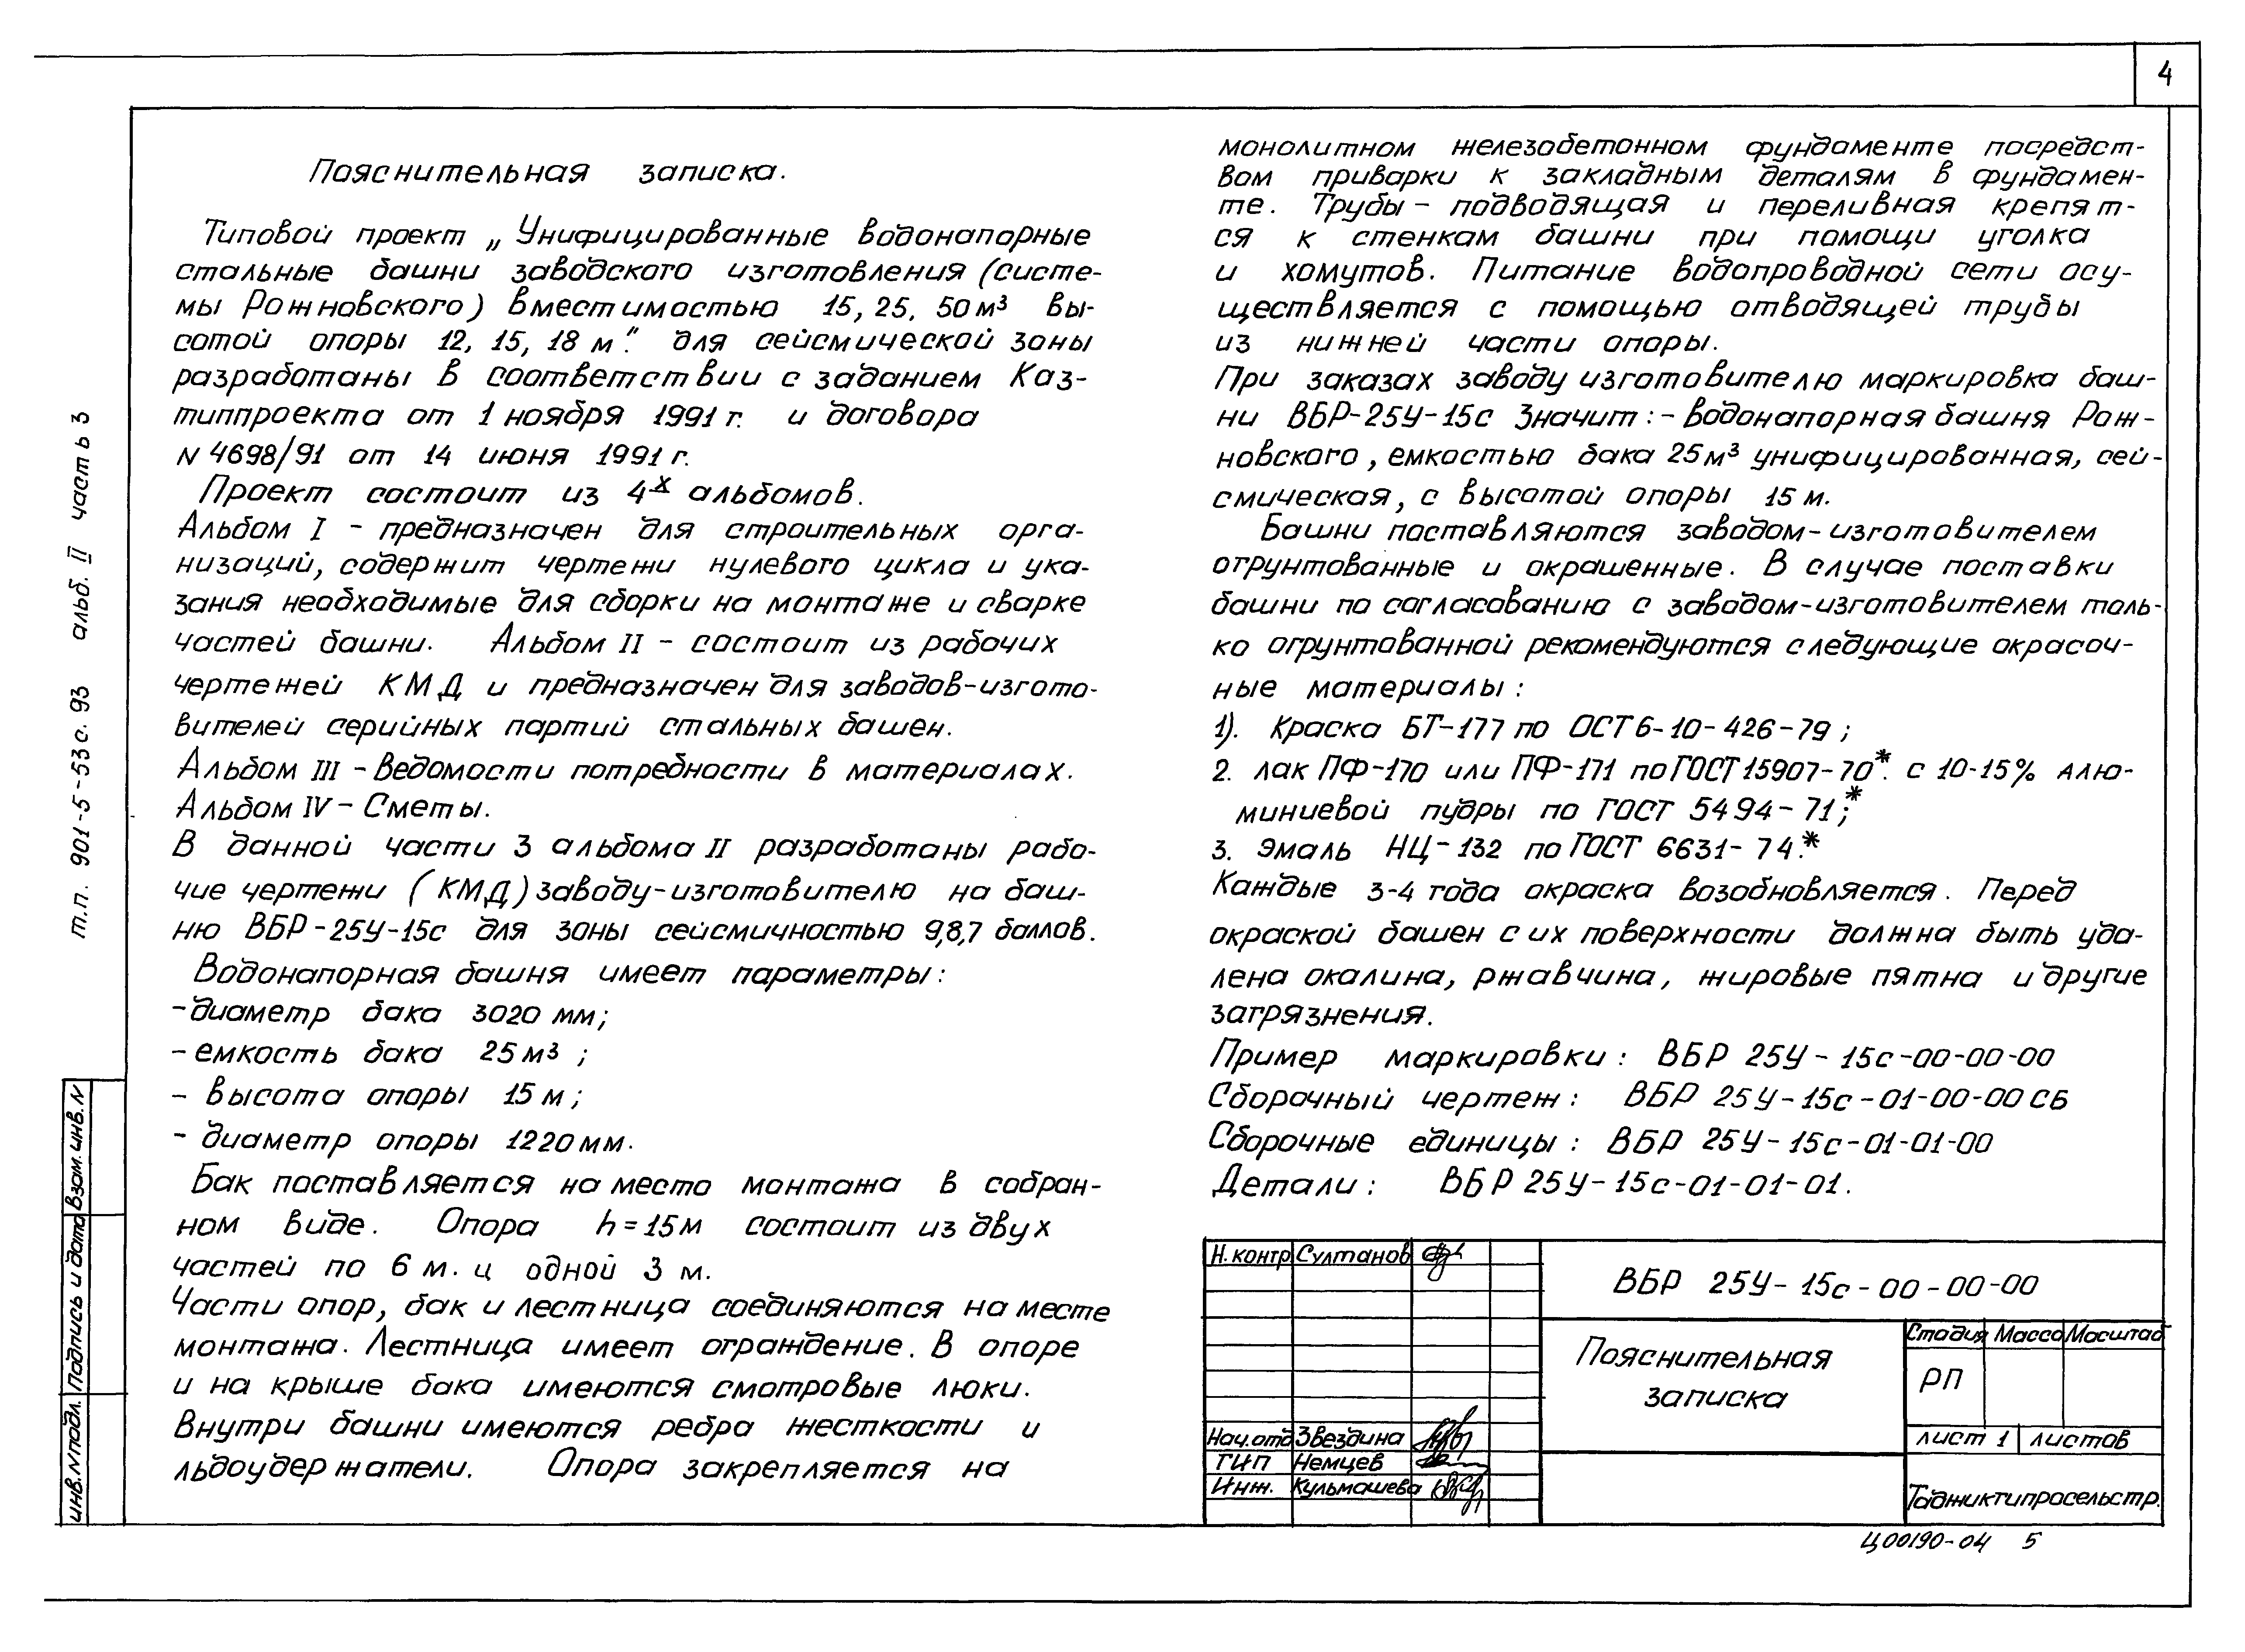 4
Пояснительная записка.
Типовой проект „Унифицированные водонапорные
стальные башни заводского изготовления (систе-
мы Рожновского) вместимостью 15, 25, 50 м³ вы-
сотой опоры 12, 15, 18 м". для сейсмической зоны
разработаны в соответствии с заданием Каз-
типпроекта от 1 ноября 1991 г. и договора
N 4698/91 от 14 июня 1991 г.
Проект состоит из 4х альбомов.
Альбом I - предназначен для строительных орга-
низаций, содержит чертежи нулевого цикла и ука-
зания необходимые для сборки на монтаже и сварке
частей башни. Альбом II - состоит из рабочих
чертежей КМД и предназначен для заводов-изгото-
вителей серийных партий стальных башен.
Альбом III - Ведомости потребности в материалах.
Альбом IV - Сметы.
В данной части 3 альбома II разработаны рабо-
чие чертежи (КМД) заводу-изготовителю на баш-
ню ВБР-25У-15с для зоны сейсмичностью 9,8,7 баллов.
Водонапорная башня имеет параметры:
- диаметр бака 3020 мм;
- емкость бака 25 м³ ;
- высота опоры 15 м;
- диаметр опоры 1220 мм.
Бак поставляется на место монтажа в собран-
ном виде. Опора h = 15 м состоит из двух
частей по 6 м. и одной 3 м.
Части опор, бак и лестница соединяются на месте
монтажа. Лестница имеет ограждение. В опоре
и на крыше бака имеются смотровые люки.
Внутри башни имеются ребра жесткости и
льдоудержатели. Опора закрепляется на
монолитном железобетонном фундаменте посредст-
вом приварки к закладным деталям в фундамен-
те. Трубы - подводящая и переливная крепят-
ся к стенкам башни при помощи уголка
и хомутов. Питание водопроводной сети осу-
ществляется с помощью отводящей трубы
из нижней части опоры.
При заказах заводу изготовителю маркировка баш-
ни ВБР-25У-15с Значит: - водонапорная башня Рож-
новского, емкостью бака 25 м³ унифицированная, сей-
смическая, с высотой опоры 15 м.
Башни поставляются заводом-изготовителем
огрунтованные и окрашенные. В случае поставки
башни по согласованию с заводом-изготовителем толь-
ко огрунтованной рекомендуются следующие окрасоч-
ные материалы:
1). Краска БТ-177 по ОСТ 6-10-426-79 ;
2. лак ПФ-170 или ПФ-171 по ГОСТ 15907-70*. с 10-15% алю-
миниевой пудры по ГОСТ 5494-71;*
3. Эмаль НЦ-132 по ГОСТ 6631-74.*
Каждые 3-4 года окраска возобновляется. Перед
окраской башен с их поверхности должна быть уда-
лена окалина, ржавчина, жировые пятна и другие
загрязнения.
Пример маркировки: ВБР 25У-15с-00-00-00
Сборочный чертеж: ВБР 25У-15с-01-00-00 СБ
Сборочные единицы: ВБР 25У-15с-01-01-00
Детали: ВБР 25У-15с-01-01-01.
Н.контр Султанов
ВБР 25У-15с-00-00-00
Пояснительная
записка
Стадия Масса Масштаб
РП
лист 1 листов
Нач.отд Звездина
ГИП Немцев
Инж. Кульмашева
Таджиктипросельстр.
Ц00190-04 5
т.п. 901-5-53с.93 альб. II часть 3
Взам.инв.N
Подпись и дата
инв.N подл.